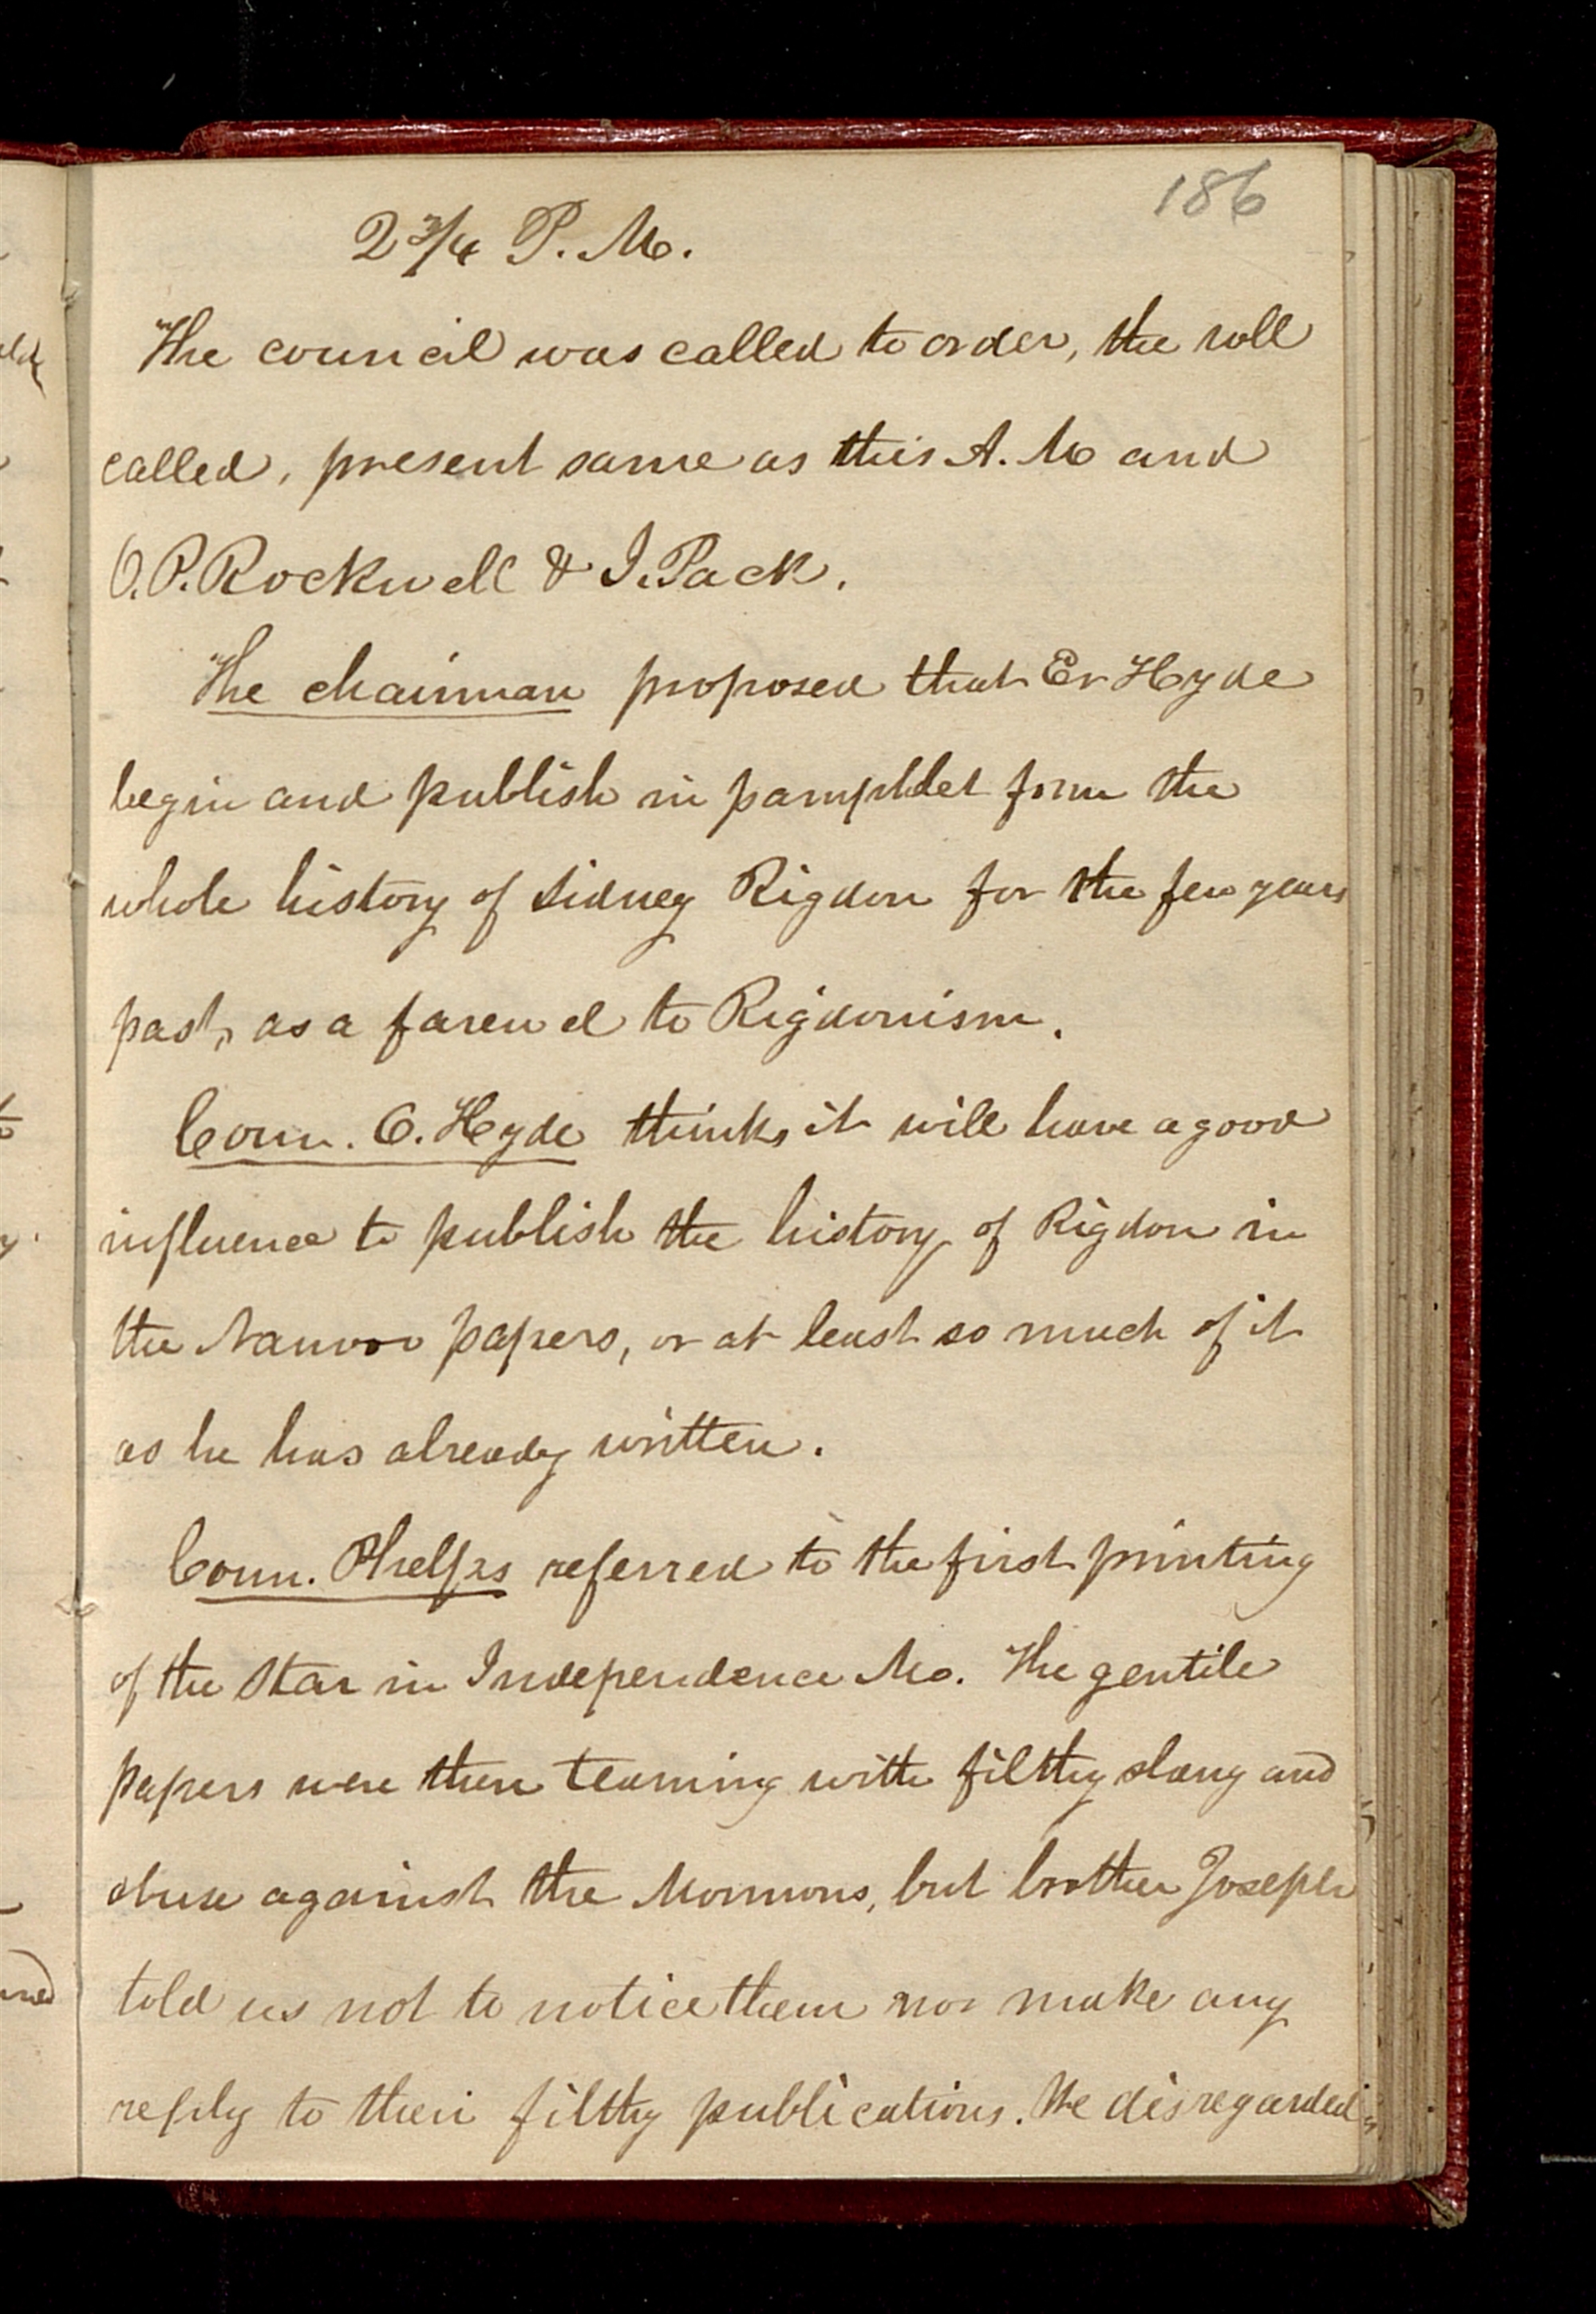 186
2 3/4 P. M.
The council was called to order, the roll
called, present same as this A. M and
O. P. Rockwell & J. Pack.
The chairman proposed that Er Hyde
begin and publish in pamphlet form the
whole history of Sidney Rigdon for the few years
past, as a farewel to Rigdonism.
Coun. O. Hyde thinks it will have a good
influence to publish the history of Rigdon in
the Nauvoo papers, or at least so much of it
as he has already written.
Coun. Phelps referred to the first printing
of the Star in Independence Mo. The gentile
papers were then teaming with filthy slang and
abuse against the Mormons, but brother Joseph
told us not to notice them nor make any
reply to their filthy publications. We disregarded